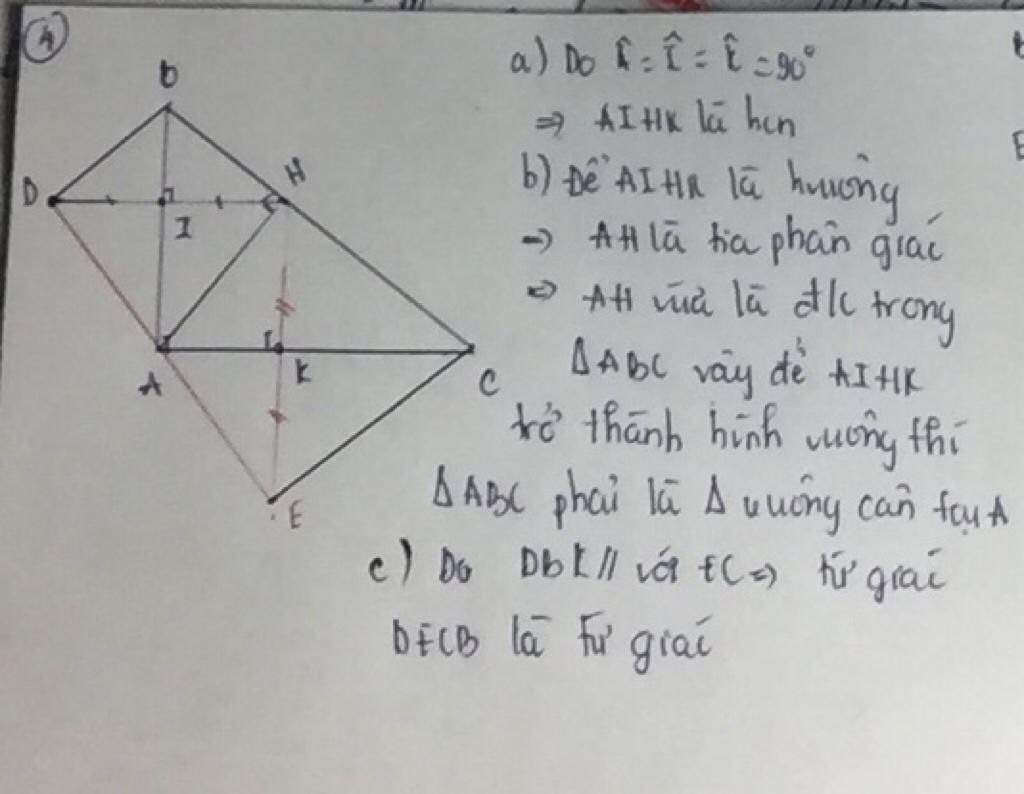 4
a) Do Â = Î = K̂ = 90°
⇒ AIHK là hcn
b) Để AIHK là hvuông
⇒ AH là tia phân giác
⇒ AH vừa là đ/c trong
ΔABC vậy để AIHK
trở thành hình vuông thì
ΔABC phải là Δ vuông cân tại A
c) Do DB // với EC ⇒ tứ giác
DECB là tứ giác
B
D
H
I
A
K
C
E